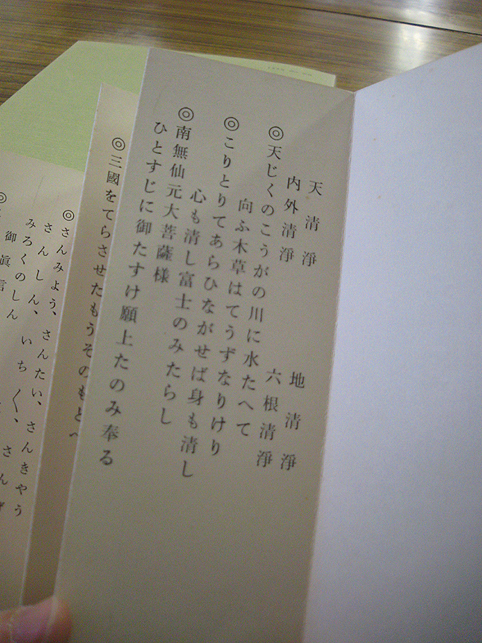 天 清 淨　地 清 淨
内外清淨　六根清淨
◎天じくのこうがの川に水たへて
向ふ木草はてうずなりけり
◎こりとりてあらひながせば身も清し
心も清し富士のみたらし
◎南無仙元大菩薩様
ひとすじに御たすけ願上たのみ奉る
◎三國をてらさせたもうそのもとへ
◎さんみょう、さんたい、さんきやう
さんしん、いち〱、さんげ
みろくのしん
御眞言